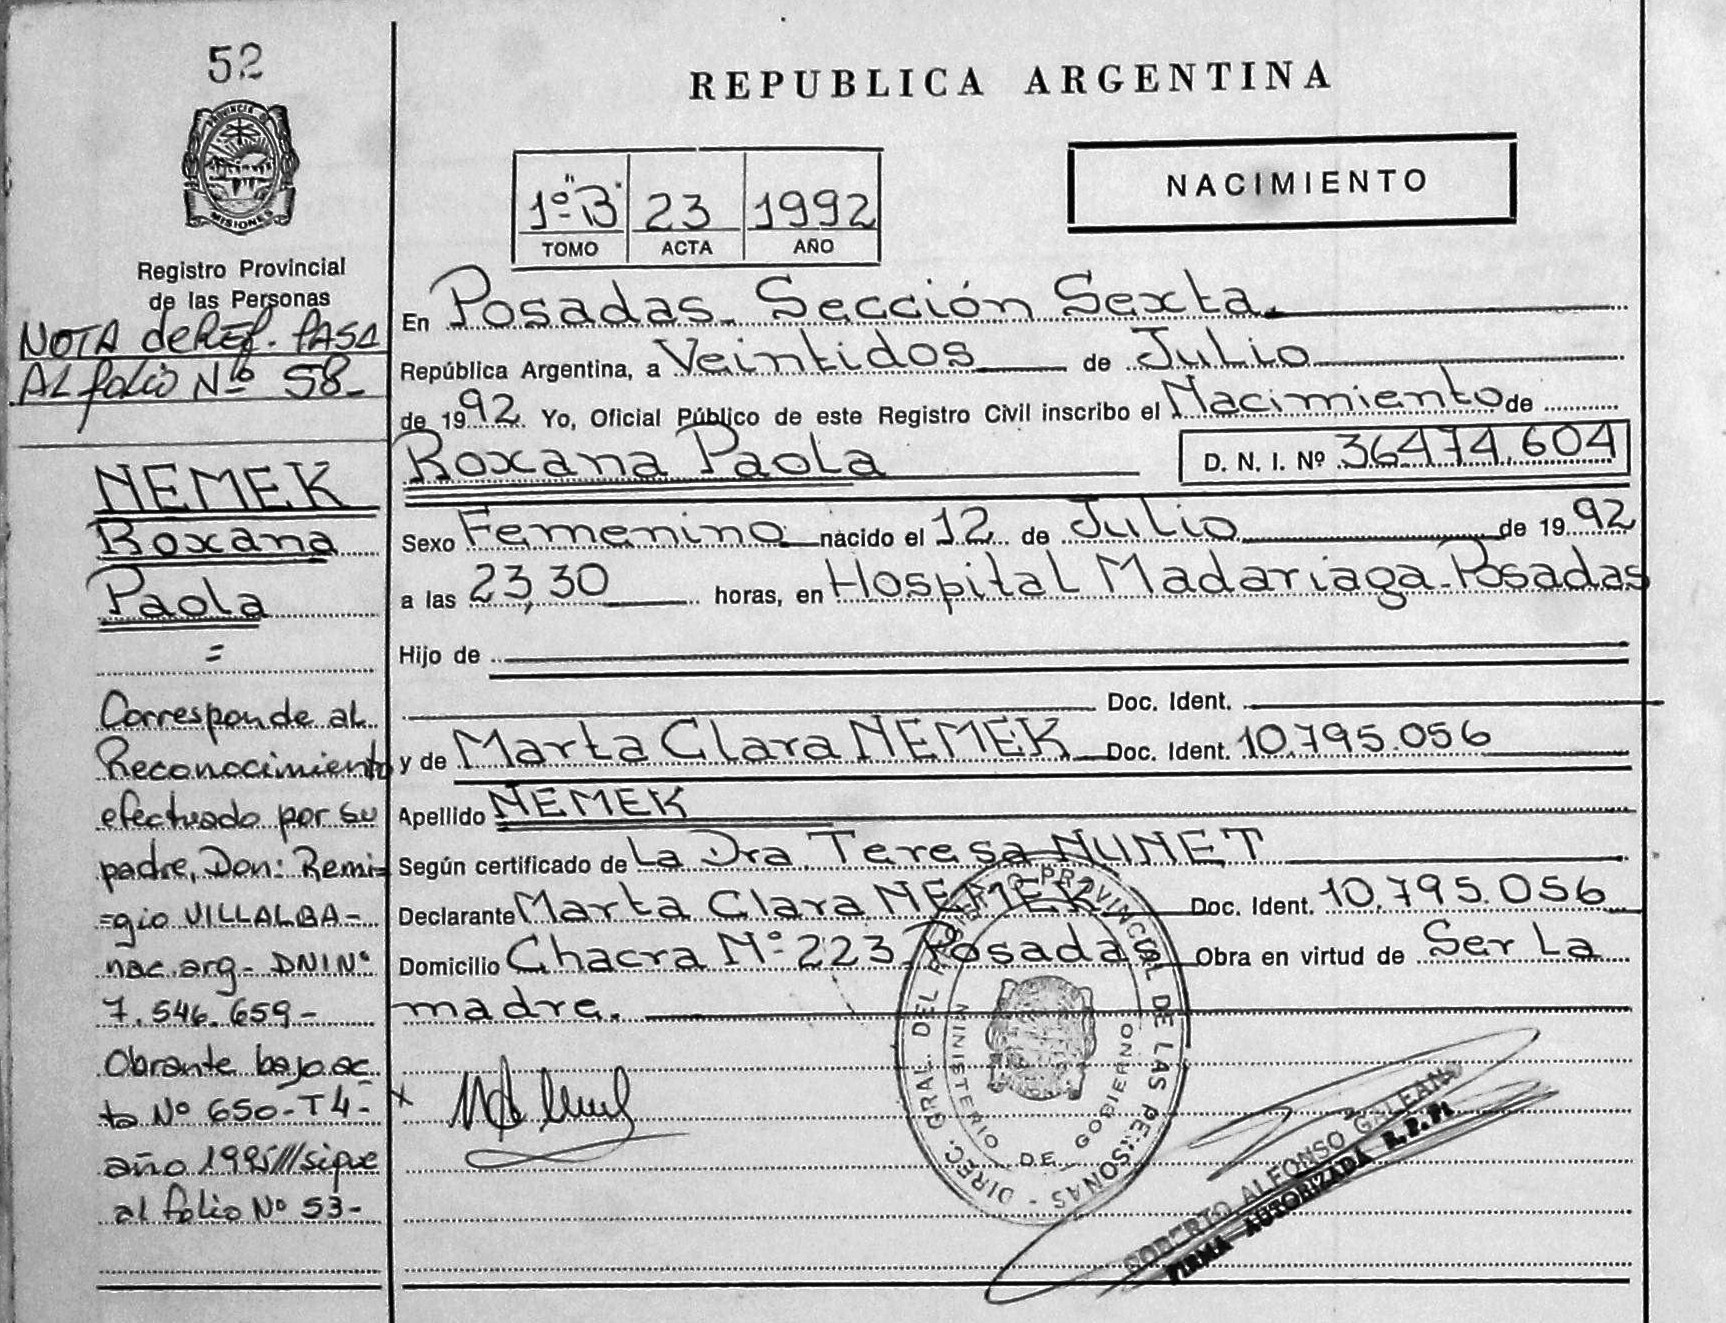 52
PROVINCIA DE
MISIONES
Registro Provincial
de las Personas
NOTA de REF. PASA
AL folio Nº 58-
NEMEK
Roxana
Paola
=
Corresponde al
Reconocimiento
efectuado por su
padre, Don: Remi-
=gio VILLALBA-
nac. arg- DNI Nº
7.546.659-
Obrante bajo ac
ta Nº 650-T4-
año 1995///sigue
al folio Nº 53-
REPUBLICA ARGENTINA
1º "B" 23 1992
TOMO ACTA AÑO
NACIMIENTO
En Posadas. Sección Sexta.
República Argentina, a Veintidos de Julio
de 1992. Yo, Oficial Público de este Registro Civil inscribo el Nacimiento de
Roxana Paola D. N. I. Nº 36474.604
Sexo Femenino nacido el 12 de Julio de 1992
a las 23,30 horas, en Hospital Madariaga-Posadas
Hijo de
Doc. Ident.
y de Marta Clara NEMEK Doc. Ident. 10.795.056
Apellido NEMEK
Según certificado de La Dra. Teresa NUNET
Declarante Marta Clara NEMEK Doc. Ident. 10.795.056
Domicilio Chacra Nº 223. Posadas Obra en virtud de Ser La
madre.
DIREC. GRAL. DEL REGISTRO PROVINCIAL DE LAS PERSONAS -
MINISTERIO DE GOBIERNO
ROBERTO ALFONSO GALEANO
FIRMA AUTORIZADA R. P. P.